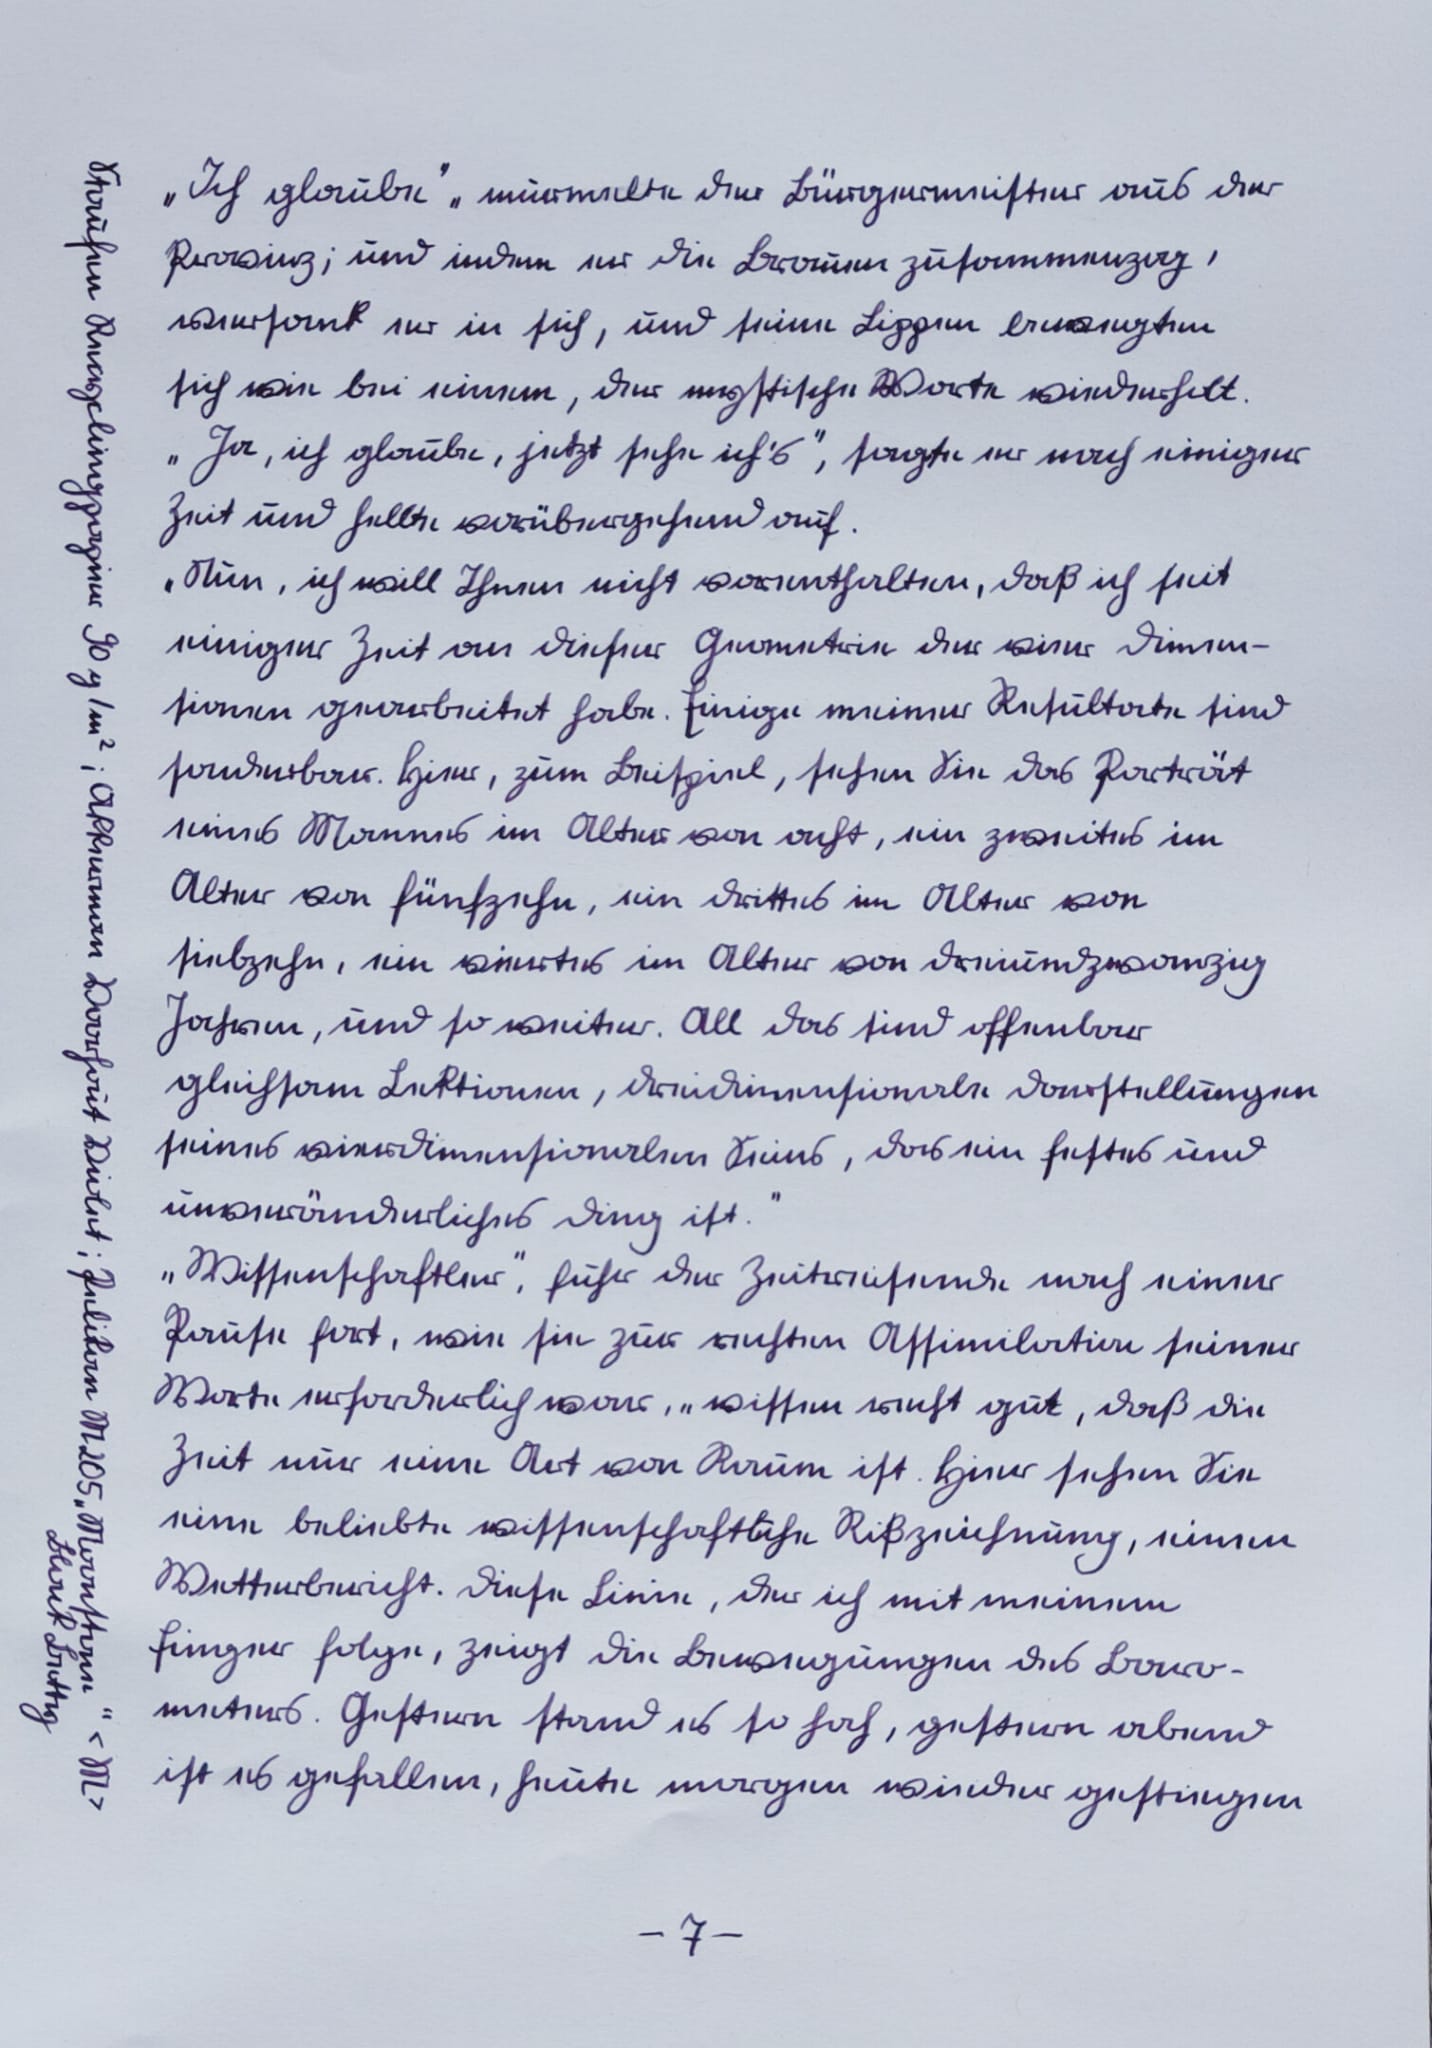 „Ich glaube“„ murmelte der Bürgermeister aus der
Provinz; und indem er die Brauen zusammenzog,
versank er in sich, und seine Lippen bewegten
sich wie bei einem, der mystische Worte wiederholt.
„Ja, ich glaube, jetzt sehe ich's“, sagte er nach einiger
Zeit und hellte vorübergehend auf.
„Nun, ich will Ihnen nicht vorenthalten, daß ich seit
einiger Zeit an dieser Geometrie der vier Dimen-
sionen gearbeitet habe. Einige meiner Resultate sind
sonderbar. Hier, zum Beispiel, sehen Sie das Porträt
eines Mannes im Alter von acht, ein zweites im
Alter von fünfzehn, ein drittes im Alter von
siebzehn, ein viertes im Alter von dreiundzwanzig
Jahren, und so weiter. All das sind offenbar
gleichsam Lektionen, dreidimensionale Darstellungen
seines vierdimensionalen Seins, das ein festes und
unveränderliches Ding ist.“
„Wissenschaftler“, fuhr der Zeitreisende nach einer
Pause fort, wie sie zur rechten Assimilation seiner
Worte erforderlich war, „wissen recht gut, daß die
Zeit nur eine Art von Raum ist. Hier sehen Sie
eine beliebte wissenschaftliche Rißzeichnung, einen
Wetterbericht. Diese Linie, der ich mit meinem
Finger folge, zeigt die Bewegungen des Baro-
meters. Gestern stand es so hoch, gestern abend
ist es gefallen, heute morgen wieder gestiegen
-7-
Staufen Recyclingpapier 90 g/m²; Akkerman Voorhout Violet; Pelikan M205 „Moonstone“ <M>